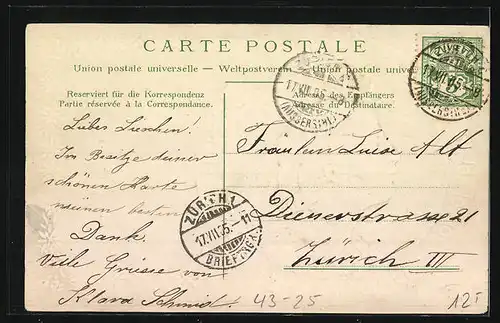 CARTE POSTALE
Union postale universelle — Weltpostverein — Union postale univers
Reserviert für die Korrespondenz
Partie réservée à la Correspondance.
Adresse des Empfängers
Adresse du Destinataire.
17.VII.05
(AUSSERSIHL)
17.VII.05
Liebes Lieschen!
Im Besitze deiner
schönen Karte
meinen besten
Dank.
Viele Grüsse von
Klara Schmid.
Fräulein Luise Alt
Dienerstrasse 21
Zürich III
ZÜRICH 1
17.VII.05. 11
BRIEFTRÄG.
43-25
12.-